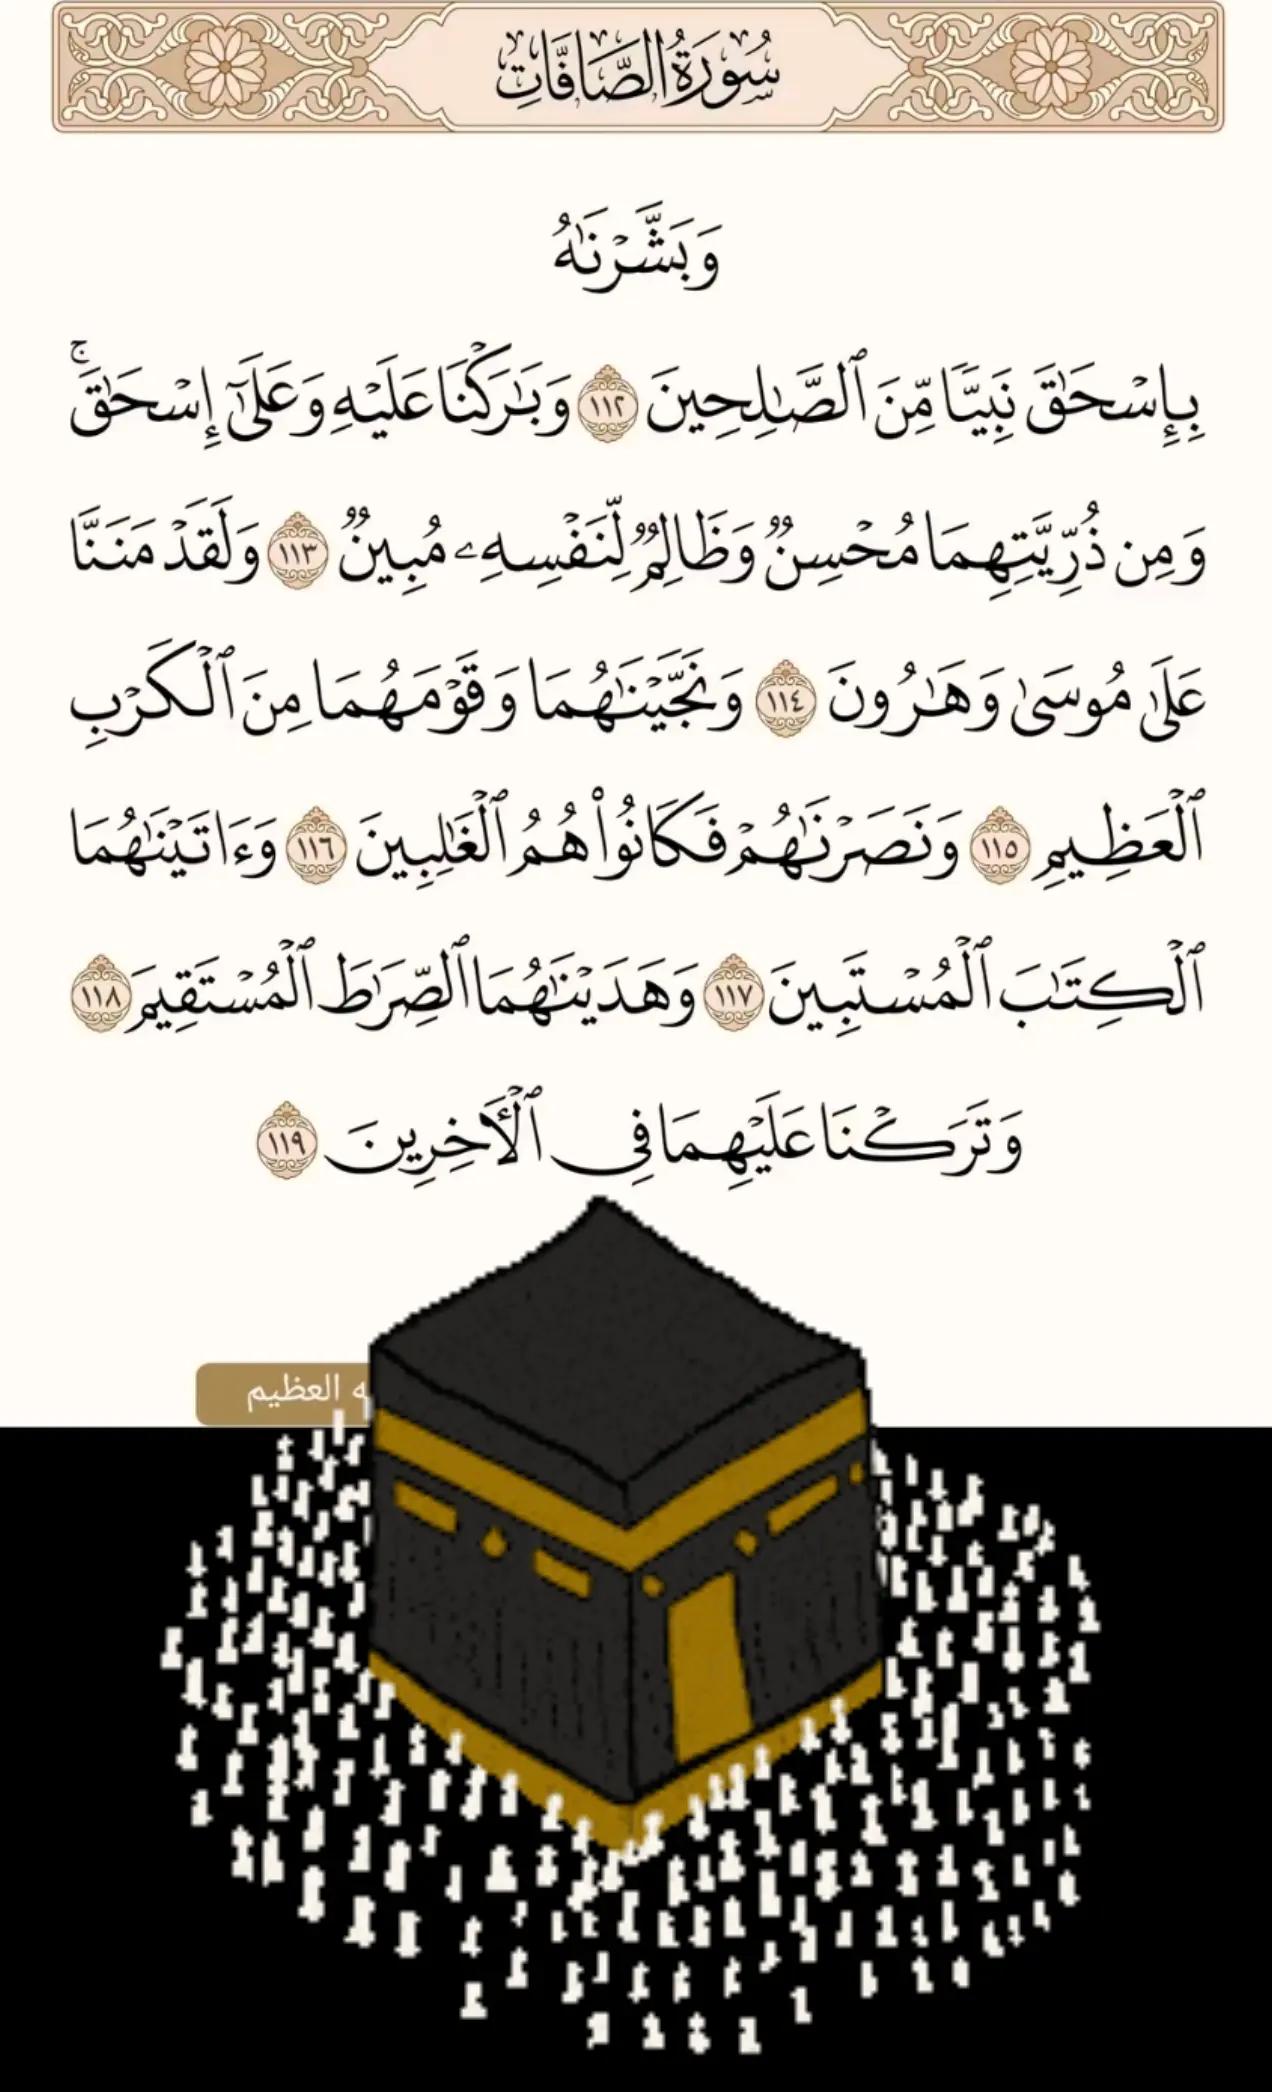 سُورَةُ الصَّافَّاتِ
وَبَشَّرْنَٰهُ
بِإِسْحَٰقَ نَبِيًّا مِّنَ ٱلصَّٰلِحِينَ ١١٢ وَبَٰرَكْنَا عَلَيْهِ وَعَلَىٰٓ إِسْحَٰقَ ۚ
وَمِن ذُرِّيَّتِهِمَا مُحْسِنٌ وَظَالِمٌ لِّنَفْسِهِۦ مُبِينٌ ١١٣ وَلَقَدْ مَنَنَّا
عَلَىٰ مُوسَىٰ وَهَٰرُونَ ١١٤ وَنَجَّيْنَٰهُمَا وَقَوْمَهُمَا مِنَ ٱلْكَرْبِ
ٱلْعَظِيمِ ١١٥ وَنَصَرْنَٰهُمْ فَكَانُوا۟ هُمُ ٱلْغَٰلِبِينَ ١١٦ وَءَاتَيْنَٰهُمَا
ٱلْكِتَٰبَ ٱلْمُسْتَبِينَ ١١٧ وَهَدَيْنَٰهُمَا ٱلصِّرَٰطَ ٱلْمُسْتَقِيمَ ١١٨
وَتَرَكْنَا عَلَيْهِمَا فِى ٱلْءَاخِرِينَ ١١٩
العظيم